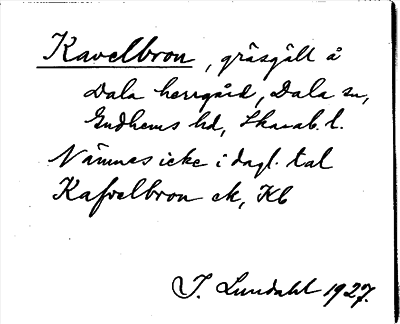 Kavelbron, gräsgäll å
Dala herrgård, Dala sn,
Gudhems hd, Skarab. l.
Nämnes icke i dagl. tal
Kafvelbron ek, Kb
J. Lundahl 1927.